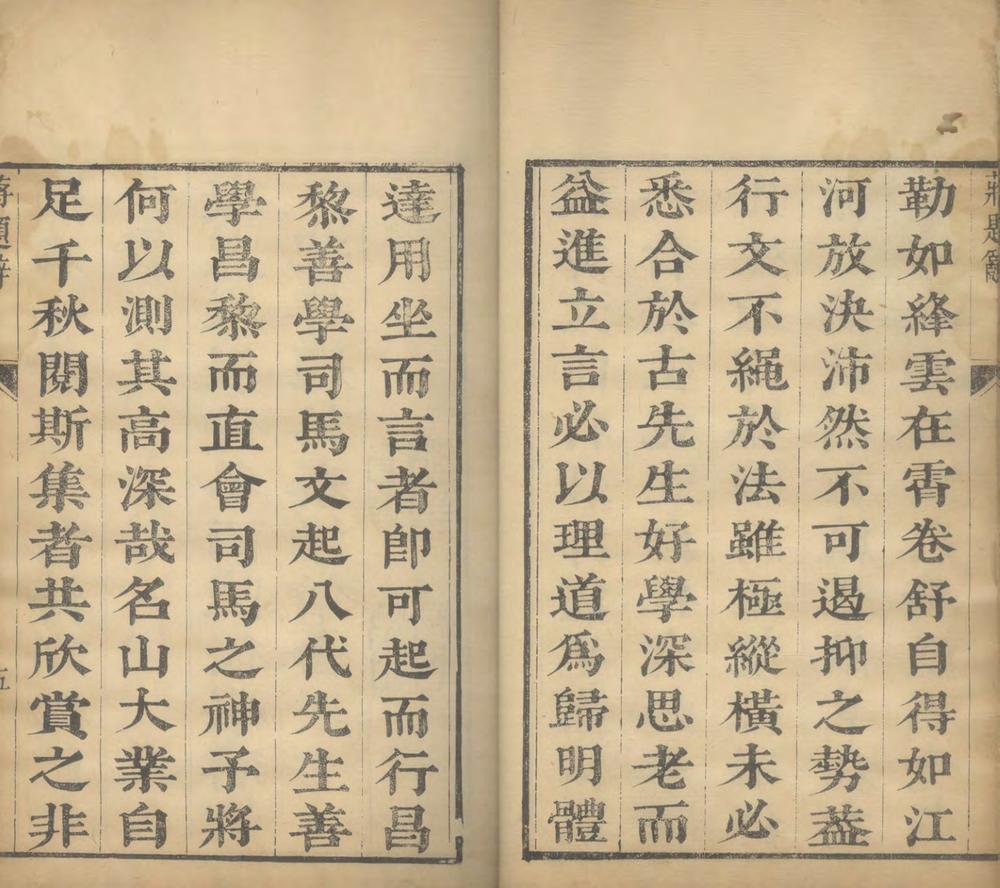 蔣題辭
勒如絳雲在霄卷舒自得如江
河放決沛然不可遏抑之勢葢
行文不繩於法雖極縱橫未必
悉合於古先生好學深思老而
益進立言必以理道爲歸明體
達用坐而言者卽可起而行昌
黎善學司馬文起八代先生善
學昌黎而直會司馬之神予將
何以測其高深哉名山大業自
足千秋閱斯集者共欣賞之非
蔣題辭
五